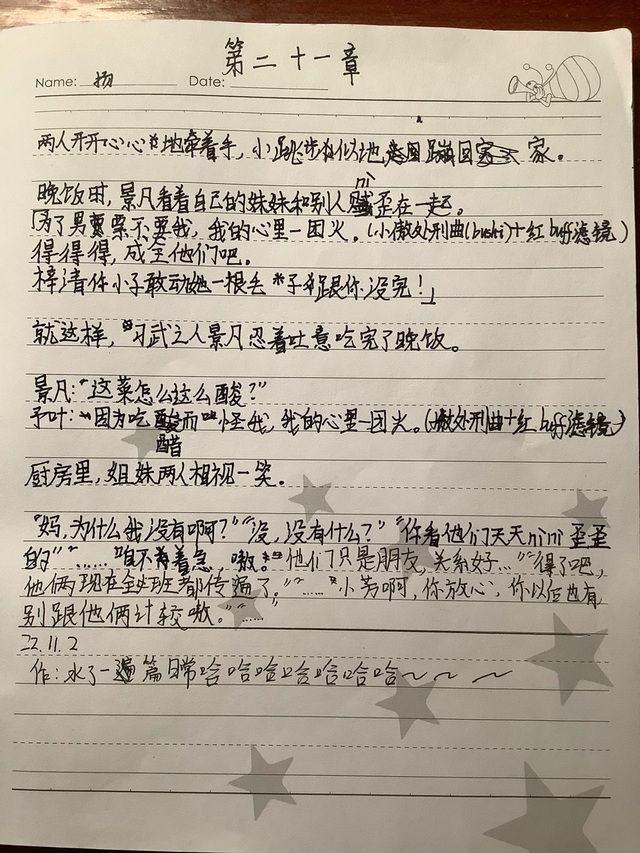 第二十一章
Name: 杨 Date:
两人开开心心地牵着手，小跳步似地蹦回家。
晚饭时，景凡看着自己的妹妹和别人nì歪在一起。
「为了男票不要我，我的心里一团火。(小傲处刑曲(bushi)+红buff滤镜)
得得得，成全他们吧。
梓清你小子敢动她一根手指跟你没完！」
就这样，习武之人景凡忍着吐意吃完了晚饭。
景凡："这菜怎么这么酸？"
予叶："因为吃醋而怪我，我的心里一团火。(傲处刑曲+红buff滤镜)
厨房里，姐妹两人相视一笑。
"妈，为什么我没有啊？""没，没有什么？""你看他们天天nini歪歪
的""……咱不着急，嗷。他们只是朋友，关系好…""得了吧，
他俩现在全班都传遍了。""……小芳啊，你放心，你以后也有，
别跟他俩计较嗷。""……"
22.11.2
作：水了一篇日常哈哈哈哈哈哈哈哈～～～